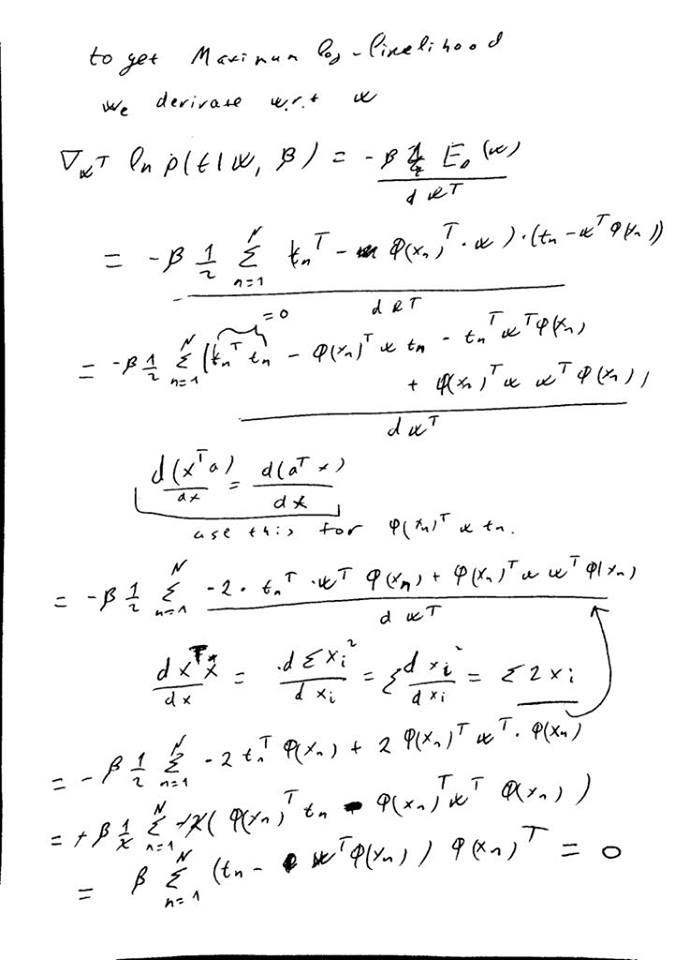 to get Maximum log-likelihood
we derivate w.r.t w
∇_{w^T} ln p(t|w, β) = -β E_D(w) / d w^T
= -β 1/2 Σ_{n=1}^{N} t_n^T - φ(x_n)^T · w) · (t_n - w^T φ(x_n)) / d w^T
= 0
= -β 1/2 Σ_{n=1}^{N} (t_n^T t_n - φ(x_n)^T w t_n - t_n^T w^T φ(x_n)
+ φ(x_n)^T w w^T φ(x_n)) / d w^T
d(x^T a)/dx = d(a^T x)/dx
use this for φ(x_n)^T w t_n.
= -β 1/2 Σ_{n=1}^{N} -2 · t_n^T · w^T φ(x_n) + φ(x_n)^T w w^T φ(x_n) / d w^T
d x^T x / dx = d Σ x_i^2 / d x_i = Σ d x_i^2 / d x_i = Σ 2 x_i
= -β 1/2 Σ_{n=1}^{N} -2 t_n^T φ(x_n) + 2 φ(x_n)^T w^T · φ(x_n)
= +β 1/2 Σ_{n=1}^{N} +2( φ(x_n)^T t_n - φ(x_n)^T w^T φ(x_n) )
= β Σ_{n=1}^{N} (t_n - w^T φ(x_n)) φ(x_n)^T = 0